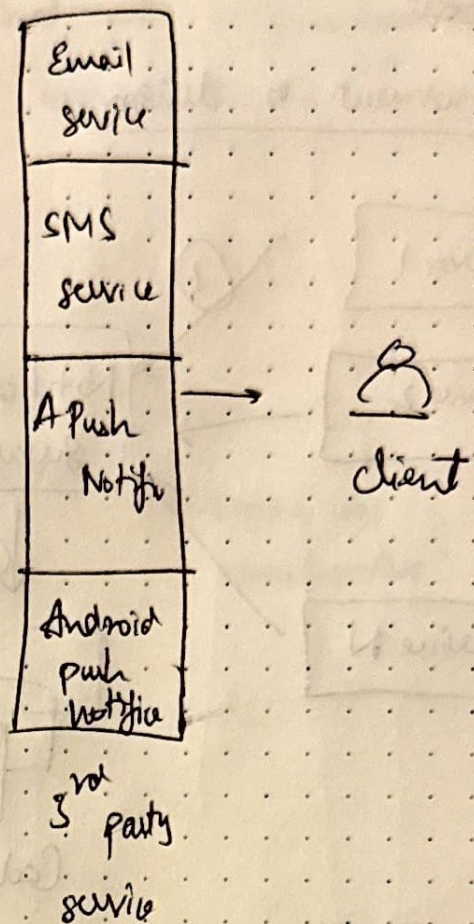 Email
service
SMS
service
A Push
Notific
client
Android
push
Notifica
3rd party
service